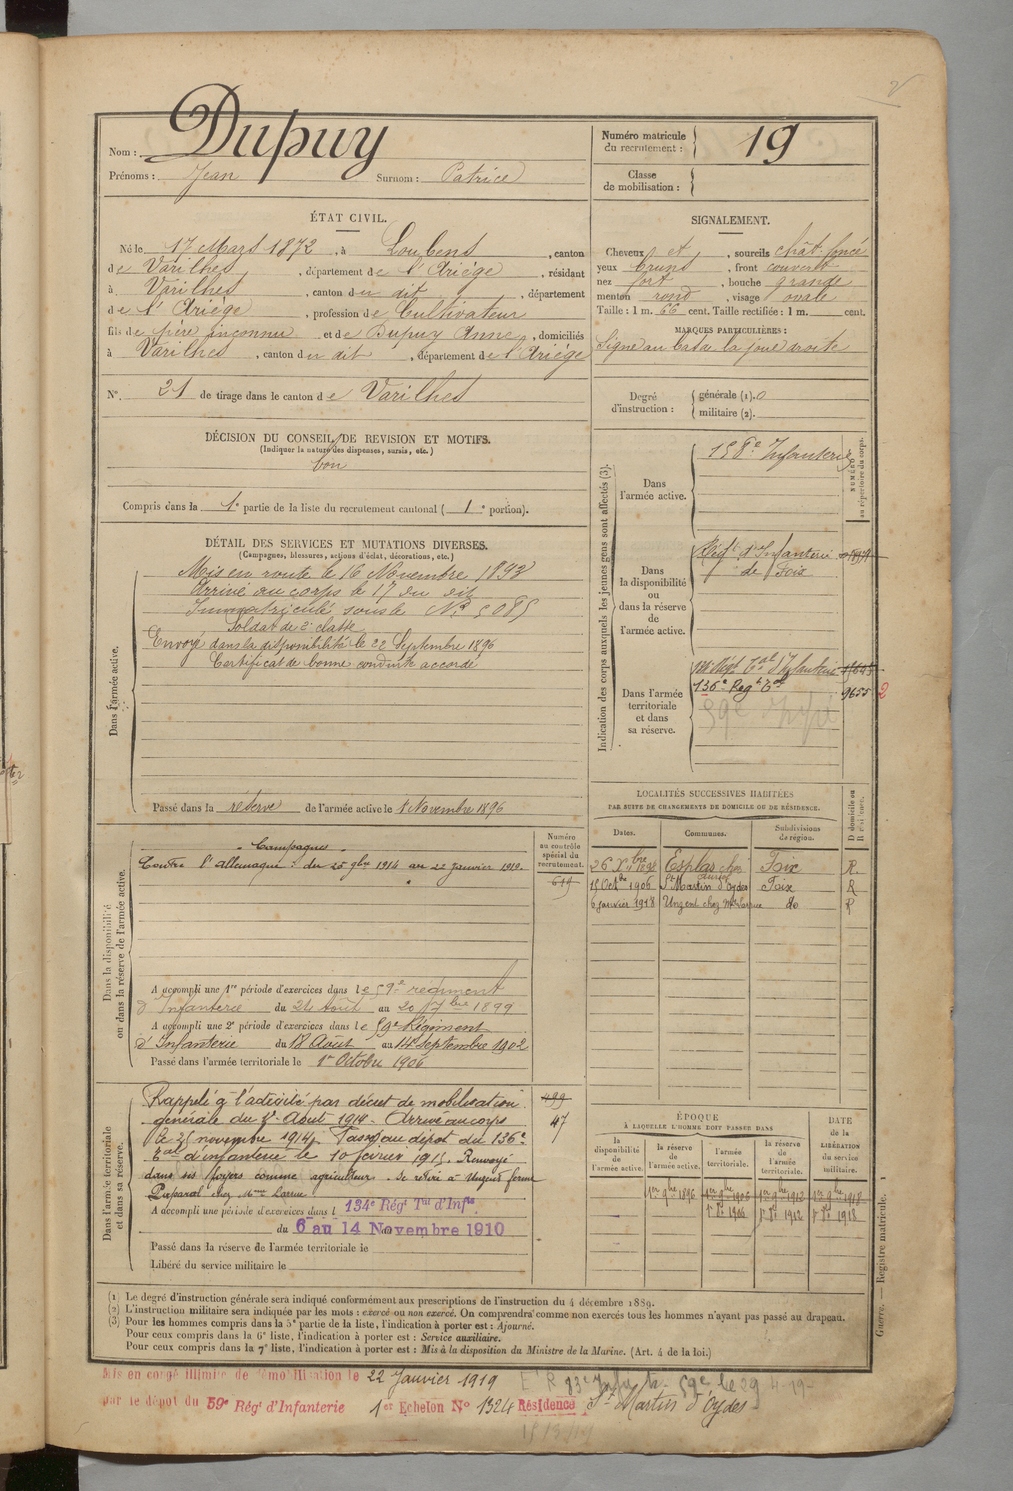 Nom : Dupuy
Prénoms : Jean Surnom : Patrice
Numéro matricule du recrutement : 19
Classe de mobilisation :
ÉTAT CIVIL.
Né le 17 Mars 1872, à Loubens, canton
de Varilhes, département de l'Ariége, résidant
à Varilhes, canton du dit, département
de l'Ariége, profession de Cultivateur
fils de père inconnu et de Dupuy Anne, domiciliés
à Varilhes, canton du dit, département de l'Ariége
N° 21 de tirage dans le canton de Varilhes
SIGNALEMENT.
Cheveux et, sourcils chât. foncé
yeux bruns, front couvert
nez fort, bouche grande
menton rond, visage ovale
Taille : 1 m. 66 cent. Taille rectifiée : 1 m. cent.
MARQUES PARTICULIÈRES :
Signe au bas de la joue droite
Degré d'instruction : générale (1). 0
militaire (2).
DÉCISION DU CONSEIL DE REVISION ET MOTIFS.
(Indiquer la nature des dispenses, sursis, etc.)
bon
Compris dans la 1e partie de la liste du recrutement cantonal ( 1e portion).
DÉTAIL DES SERVICES ET MUTATIONS DIVERSES.
(Campagnes, blessures, actions d'éclat, décorations, etc.)
Dans l'armée active.
Mis en route le 16 Novembre 1893
Arrivé au corps le 17 du dit
Immatriculé sous le N° 5085
Soldat de 2e classe
Envoyé dans la disponibilité le 22 Septembre 1896
Certificat de bonne conduite accordé
Passé dans la réserve de l'armée active le 1 Novembre 1896
Indication des corps auxquels les jeunes gens sont affectés (3).
NUMÉRO au répertoire du corps.
Dans l'armée active.
158e Infanterie
Dans la disponibilité ou dans la réserve de l'armée active.
Régt d'Infanterie
de Foix
Dans l'armée territoriale et dans sa réserve.
136e Regt Tal 9655 2
59e
LOCALITÉS SUCCESSIVES HABITÉES
PAR SUITE DE CHANGEMENTS DE DOMICILE OU DE RÉSIDENCE.
Dates. Communes. Subdivisions de région. D domicile ou R résidence.
Esplas Foix R.
15 Octbre 1906 St Martin d'Oydes Foix R
6 janvier 1918 Unzent chez Mme Larrue do R
Dans la disponibilité ou dans la réserve de l'armée active.
Numéro au contrôle spécial du recrutement.
619
Campagnes
Contre l'Allemagne : du 25 9bre 1914 au 22 janvier 1919.
A accompli une 1re période d'exercices dans le 59e régiment
d'Infanterie du 24 Août au 20 7bre 1899
A accompli une 2e période d'exercices dans le 59e Régiment
d'Infanterie du 18 Août au 14 Septembre 1902
Passé dans l'armée territoriale le 1er Octobre 1906
Dans l'armée territoriale et dans sa réserve.
499
47
Rappelé à l'activité par décret de mobilisation
générale du 1er Août 1914. Arrivé au corps
le 25 novembre 1914. Passé au dépôt du 136e
Tal d'infanterie le 10 février 1915. Renvoyé
dans ses foyers comme agriculteur. Se retire à Unzent ferme
chez Mme Larrue
A accompli une période d'exercices dans l 134e Régt Tal d'Infie.
du 6 au 14 Novembre 1910
Passé dans la réserve de l'armée territoriale le
Libéré du service militaire le
ÉPOQUE
À LAQUELLE L'HOMME DOIT PASSER DANS
la disponibilité de l'armée active. la réserve de l'armée active. l'armée territoriale. la réserve de l'armée territoriale.
DATE de la LIBÉRATION du service militaire.
1er 9bre 1896 1er 9bre 1906 1er 9bre 1912 1er 9bre 1918
1er 8bre 1906 1er 8bre 1912 1er 8bre 1918
Guerre. — Registre matricule. 1
(1) Le degré d'instruction générale sera indiqué conformément aux prescriptions de l'instruction du 4 décembre 1889.
(2) L'instruction militaire sera indiquée par les mots : exercé ou non exercé. On comprendra comme non exercés tous les hommes n'ayant pas passé au drapeau.
(3) Pour les hommes compris dans la 5e partie de la liste, l'indication à porter est : Ajourné.
Pour ceux compris dans la 6e liste, l'indication à porter est : Service auxiliaire.
Pour ceux compris dans la 7e liste, l'indication à porter est : Mis à la disposition du Ministre de la Marine. (Art. 4 de la loi.)
Mis en congé illimité de démobilisation le 22 Janvier 1919
par le dépôt du 59e Régt d'Infanterie 1er Echelon N° 1324 Résidence St Martin d'Oydes